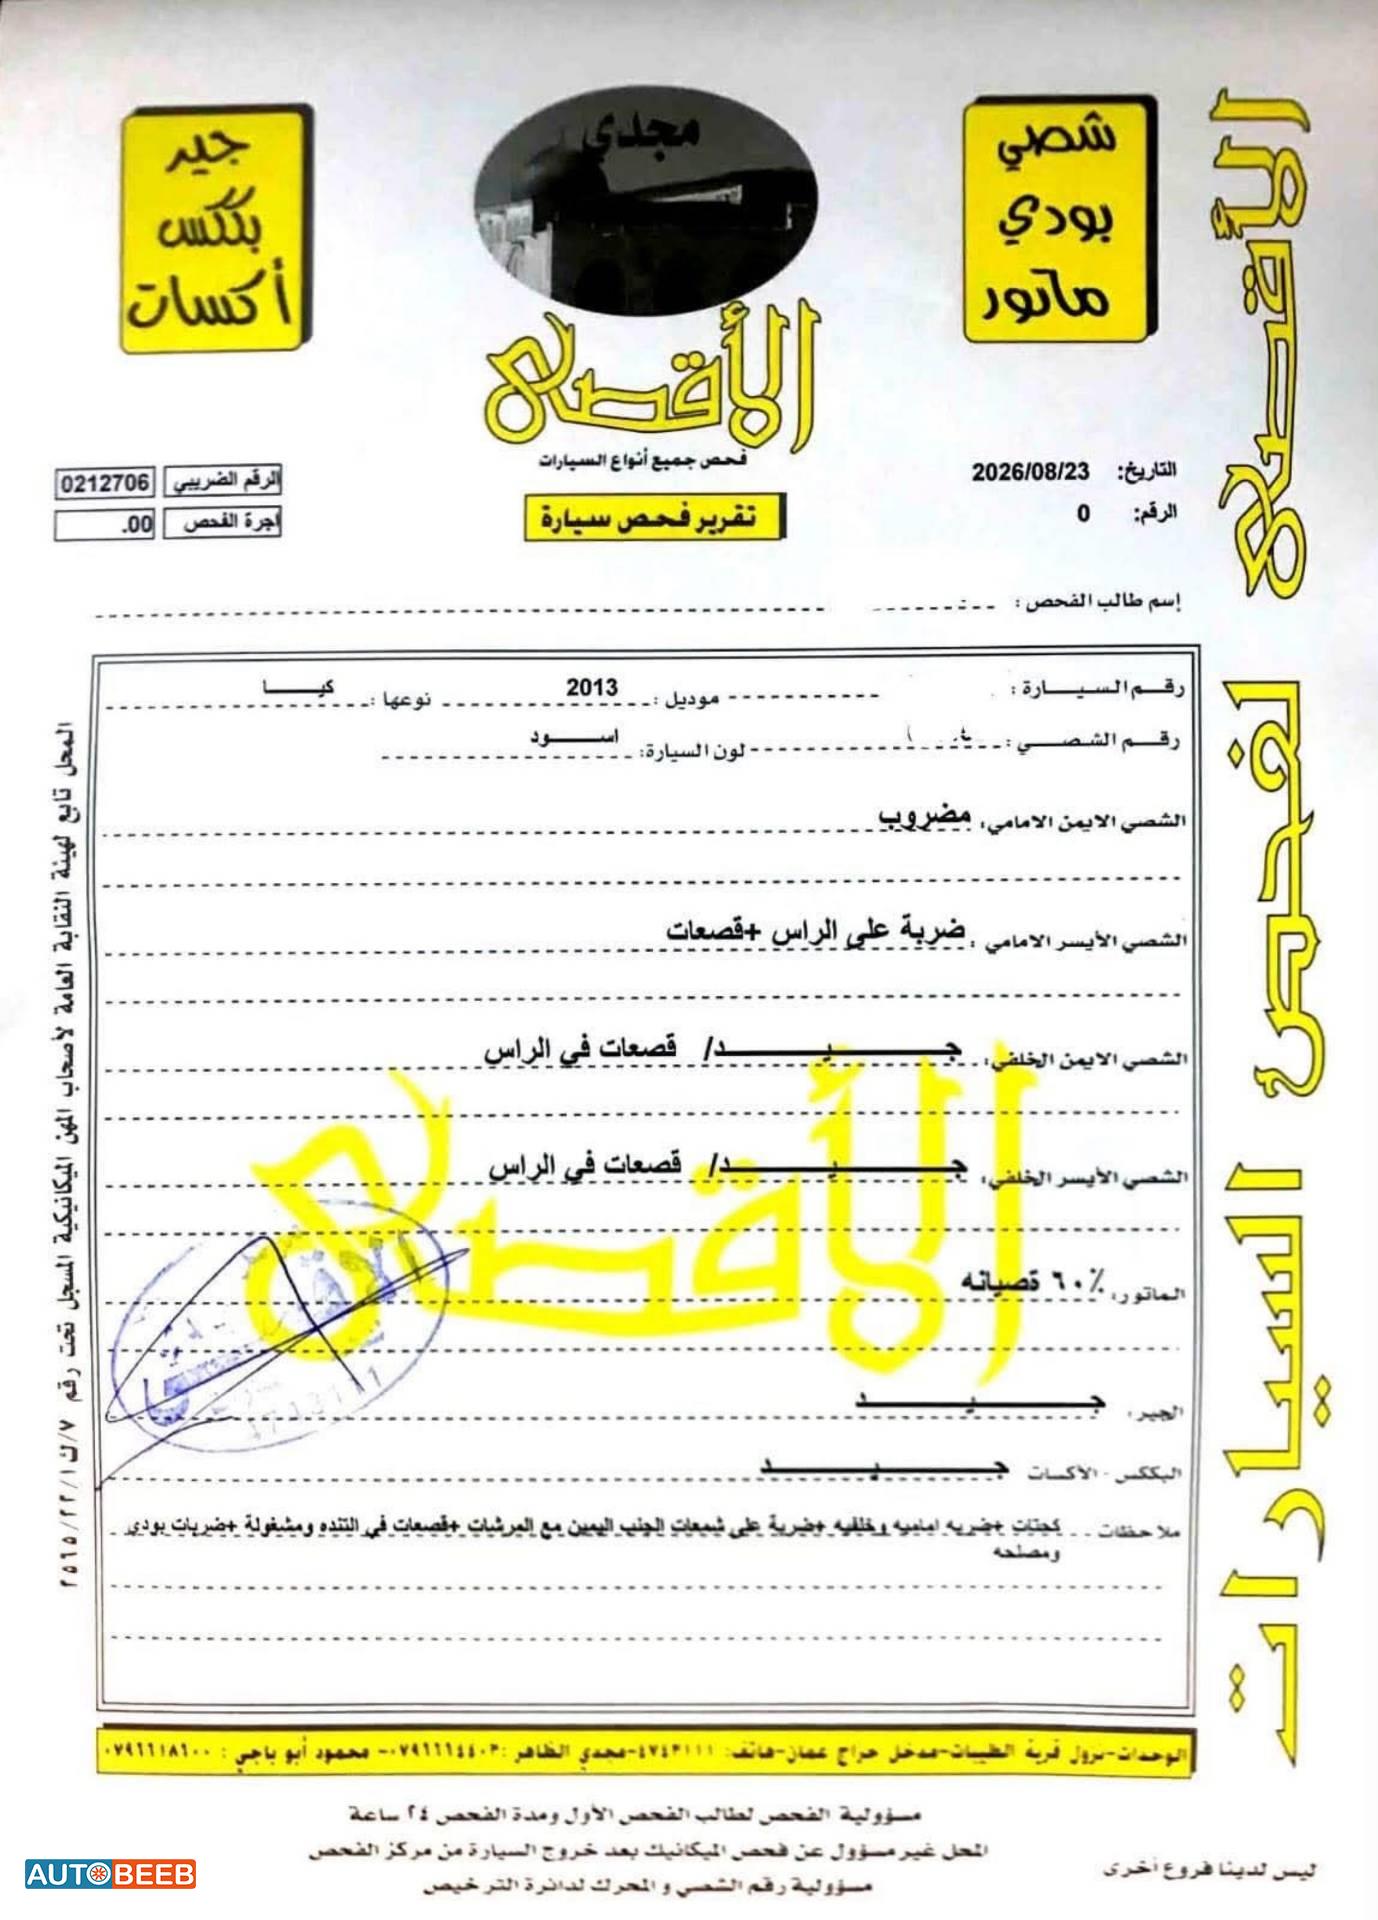 شصي
بودي
ماتور
مجدي
جير
بككس
أكسات
الأقصى
فحص جميع أنواع السيارات
تقرير فحص سيارة
التاريخ: 2026/08/23
الرقم: 0
الرقم الضريبي 0212706
اجرة الفحص 00.
إسم طالب الفحص :
رقم السيارة : موديل : 2013 نوعها : كيا
رقم الشصي : لون السيارة: اسود
الشصي الايمن الامامي: مضروب
الشصي الأيسر الامامي : ضربة على الراس +قصعات
الشصي الايمن الخلفي: جيد/ قصعات في الراس
الشصي الأيسر الخلفي: جيد/ قصعات في الراس
الماتور: ٦٠٪ قصيانه
الجير: جيد
البككس - الأكسات جيد
ملاحظات كجتات +ضربه اماميه وخلفيه +ضربة على شمعات الجنب اليمين مع المرشات +قصعات في التنده ومشغولة +ضربات بودي
ومصلحه
الأقصى
الأقصى لفحص السيارات
المحل تابع لهيئة النقابة العامة لأصحاب المهن الميكانيكية المسجل تحت رقم
الوحدات-نزول قرية الطيبات-مدخل حراج عمان-هاتف: ٤٧٤٣١١١-مجدي الظاهر :٠٧٩٦٦٦٤٤٠٣- محمود أبو باجي : ٠٧٩٦٦١٨٦٠٠
مسؤولية الفحص لطالب الفحص الأول ومدة الفحص ٢٤ ساعة
المحل غير مسؤول عن فحص الميكانيك بعد خروج السيارة من مركز الفحص
مسؤولية رقم الشصي و المحرك لدائرة الترخيص
ليس لدينا فروع أخرى
AUTOBEEB